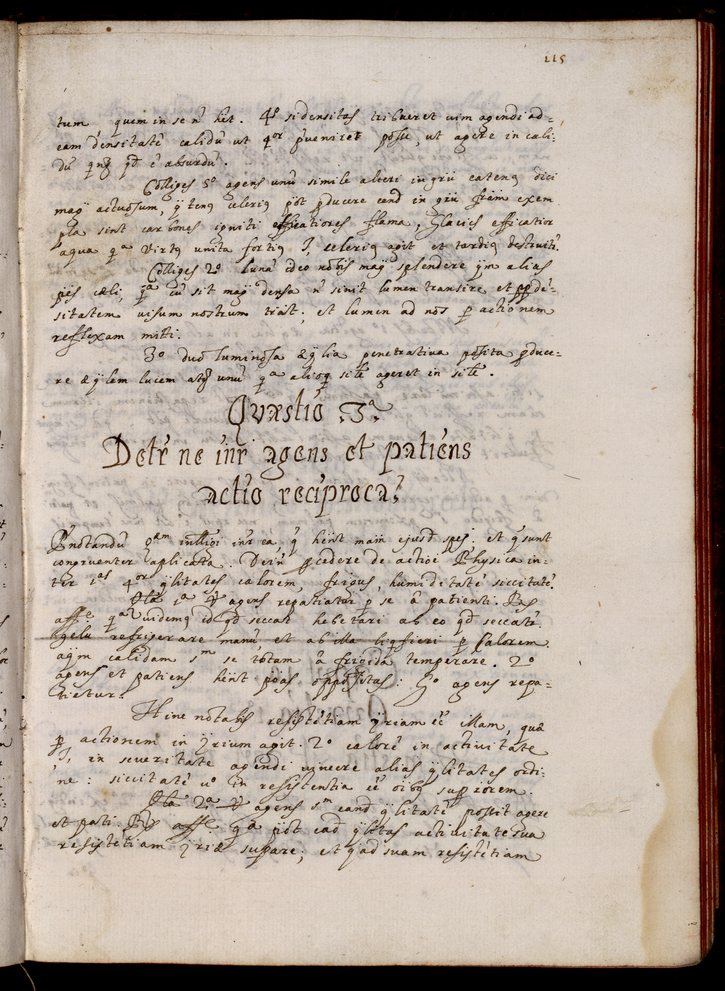 115
tum, quem in se ñ het. 4º si densitas tribueret uim agendi ad=
eam densitatē calidū ut 4or ꝓueniret posū, ut agere in cali=
dū qd ē absurdū.
Colliges 5º agens unū simile alteri in grū eatenq dici
mag actuosum, q tenq celeriq pōt ꝓducere eand in grū exem
pla sint carbones igniti efficatiores flama, glacies efficatior
aqua qa virtq unita fortiq, celeriq agit et tardiq destruit.
Colliges 2º lunā ideo nobis mag splendere qm alias
ptes cæli, qa cū sit mag densa ñ sinit lumen transire, et ꝓp dē=
sitatem uisum nostrum ; et lumen ad nos ꝑ actionem
reflexam mitti.
3º duo luminosa æqlia penetratiua posita ꝓduce=
re æqlem lucem atq unū qa alioq sile ageret in sile.
Qvæstio 3a
Detr ne inr agens et patiens
actio reciproca?
P notandū inr ea, q hent mam ejusd spēi et q sunt
congruenter aplicata. Dein ꝓcedere de actioē Physica in=
ter 4or qlitates calorem, frigus, humiditatē siccitatē
1a agens repatiatur ꝑ se à patienti.
qa uidemq id qd siccat hebetari ab eo qd seccatr
gelu refrigerare manū, et ab illa liqfieri ꝑ Calorem
aqm calidam sm se totam à frigida temperare. 2º
agens et patiens hent ptās oppositas: go agens repa=
tietur.
Hinc notabis resistētiam ēē illam, quâ
ꝑ actionem in agit. 2º calorē in actiuitate
, in seueritate agendi uincere alias qlitates ordi=
ne: siccitatē uº in resistentia ēē oibq supiorem.
2a agens sm eand qlitatē possit agere
et pati. qa pōt ead qlitas actiuitate sua
resistētiam supare; et ad suam resistētiam